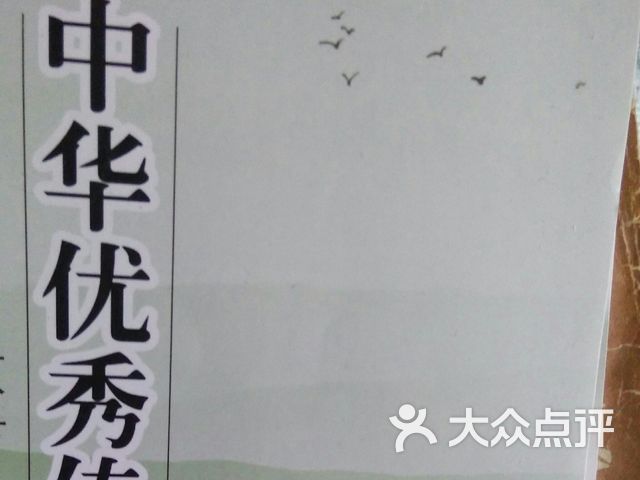 中华优秀传
大众点评